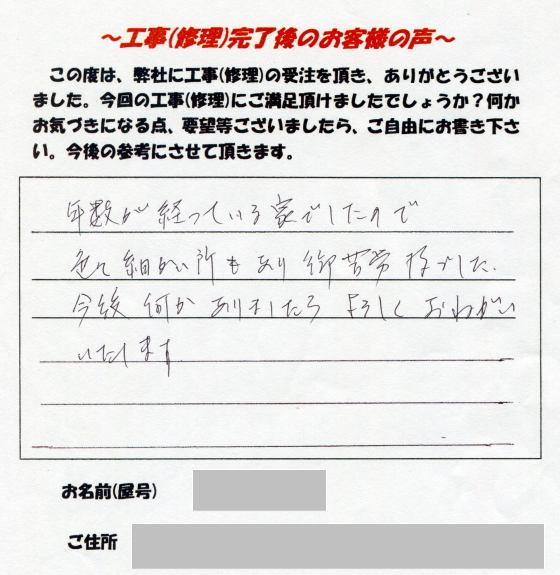 ～工事(修理)完了後のお客様の声～
この度は、弊社に工事(修理)の受注を頂き、ありがとうござい
ました。今回の工事(修理)にご満足頂けましたでしょうか？何か
お気づきになる点、要望等ございましたら、ご自由にお書き下さ
い。今後の参考にさせて頂きます。
年数が経っている家でしたので
色々細かい所もあり御苦労様でした.
今後何かありましたらよろしくおねがい
いたします
お名前(屋号)
ご住所